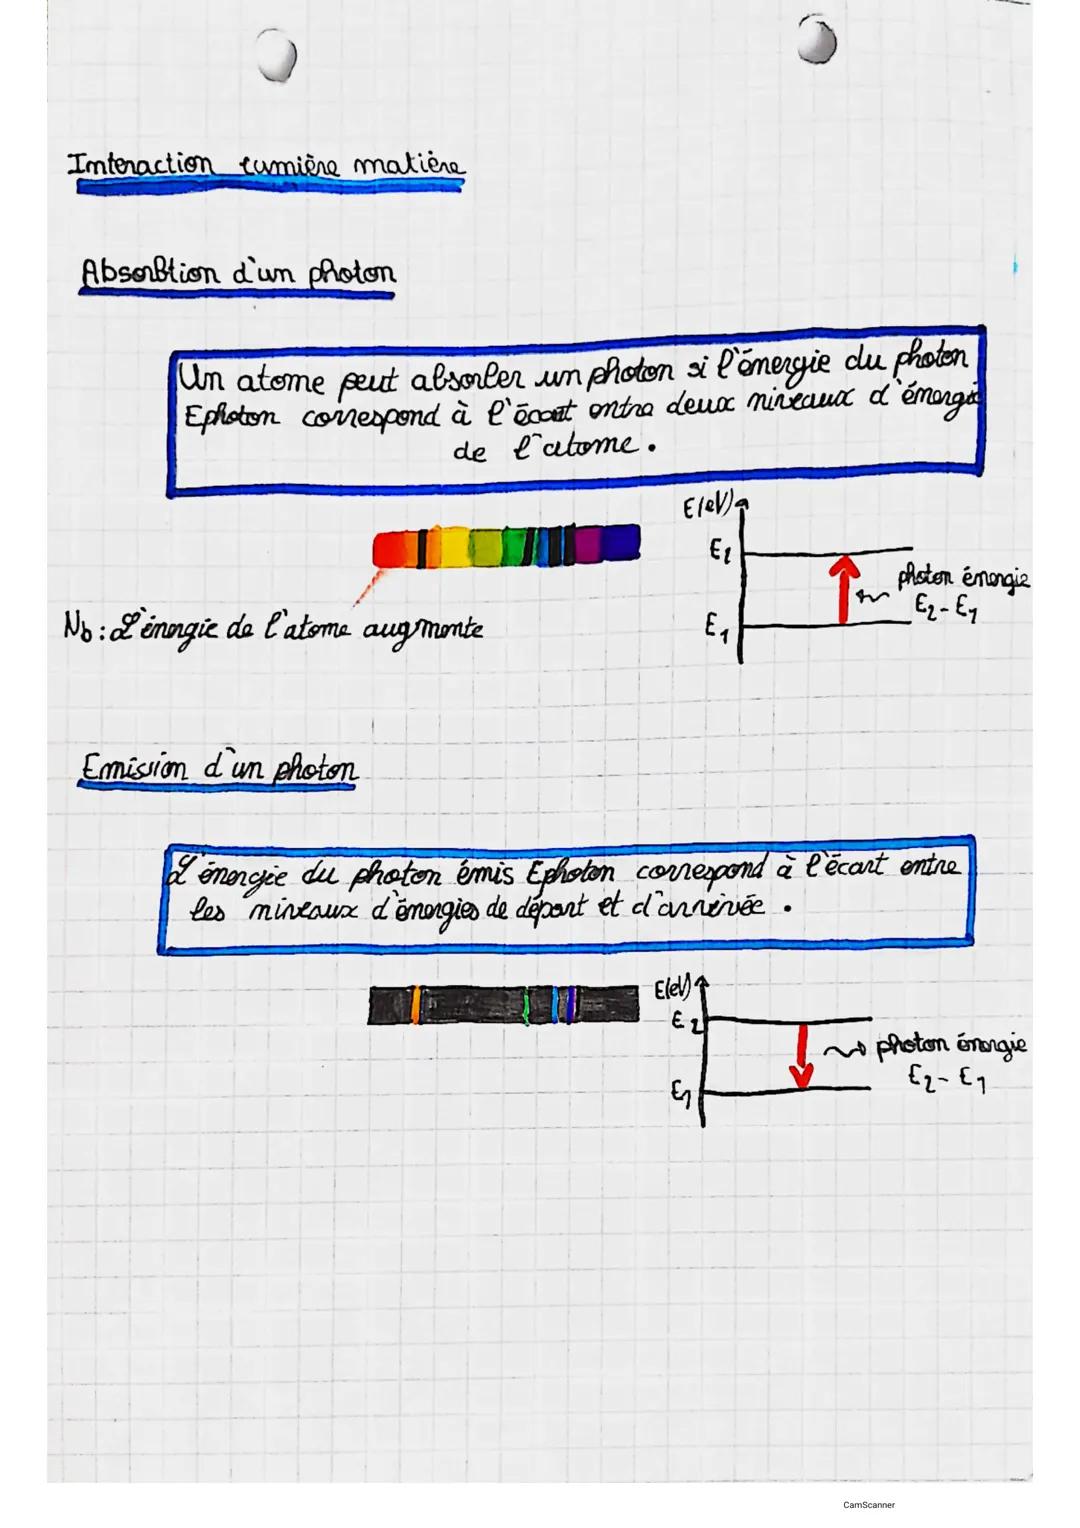 Interaction lumière matière
Absorbtion d'un photon
Un atome peut absorber un photon si l'énergie du photon
Ephoton correspond à l'écart entre deux niveaux d'énergie
de l'atome.
E(eV)
E2
photon énergie
E2-E1
E1
Nb: L'énergie de l'atome augmente
Emission d'un photon
L'énergie du photon émis Ephoton correspond à l'écart entre
les niveaux d'énergies de départ et d'arrivée.
E(eV)
E2
photon énergie
E2-E1
E1
CamScanner